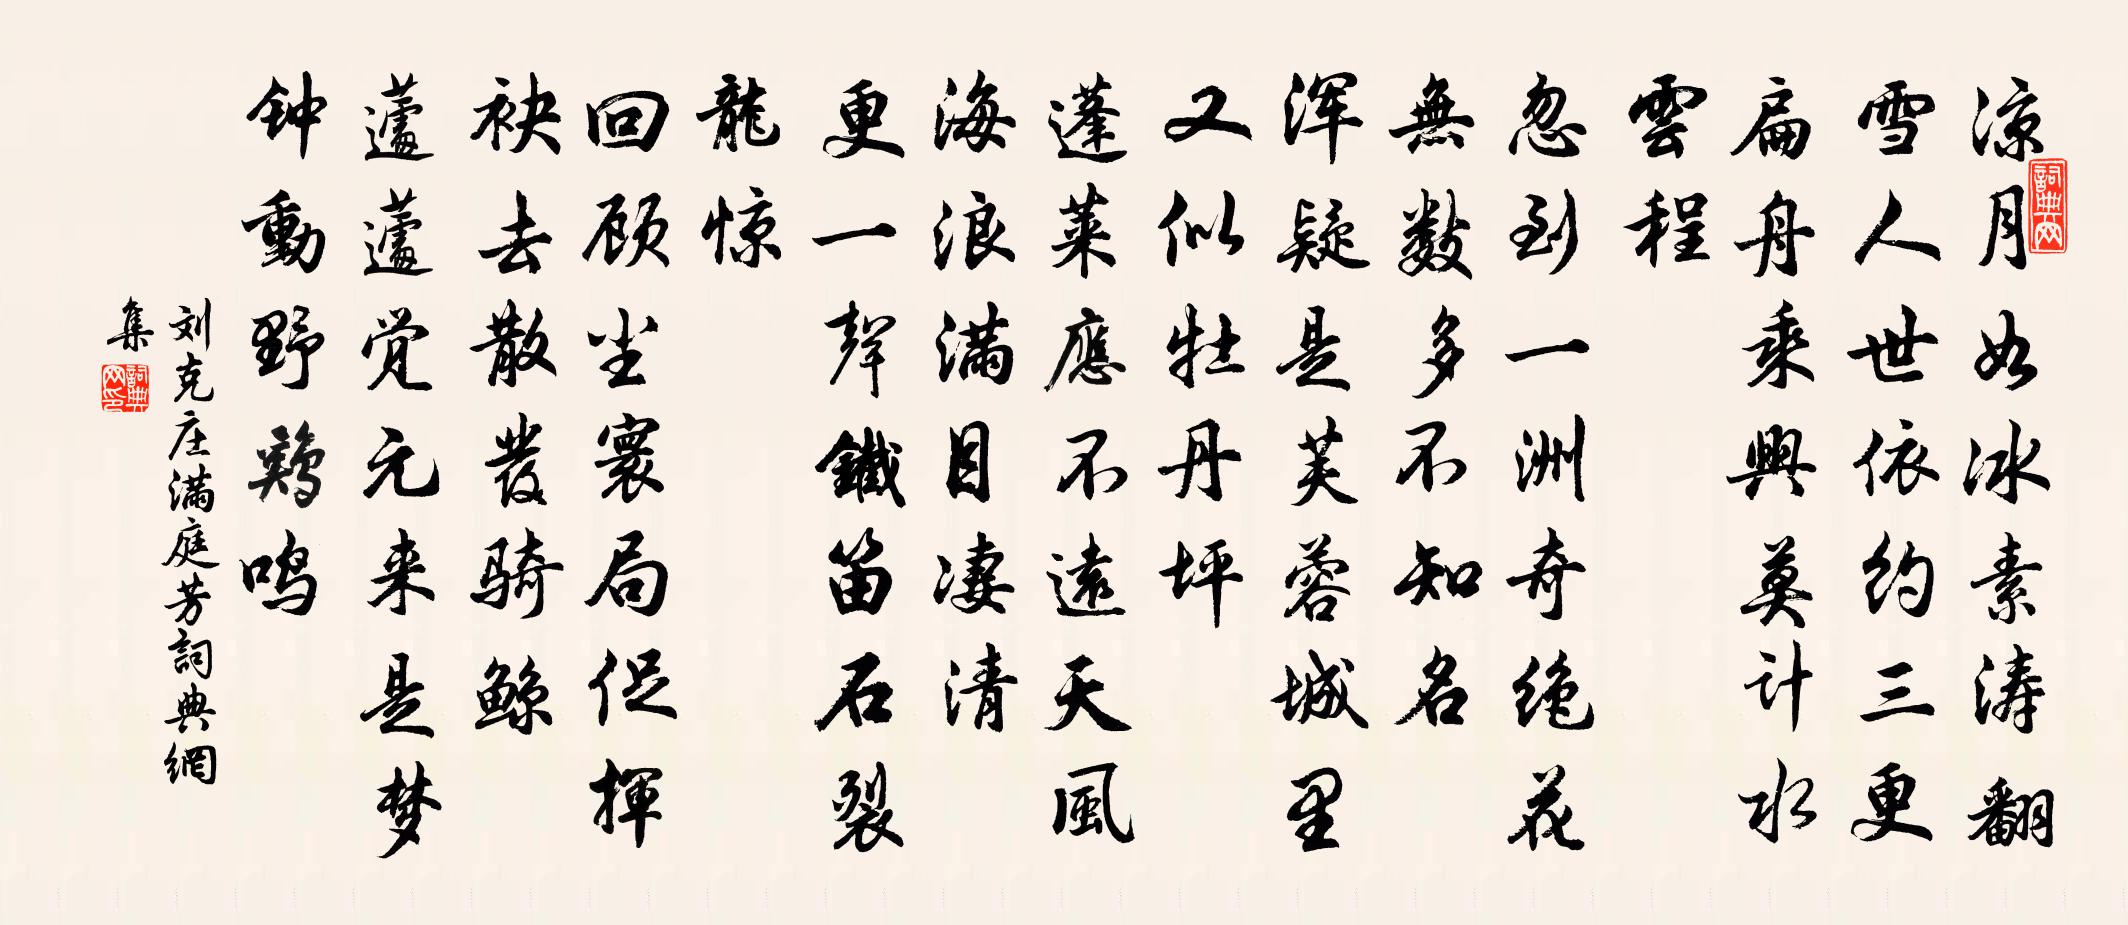 凉月如冰素涛翻
雪人世依约三更
扁舟乘興莫计水
雲程
忽到一洲奇绝花
無数多不知名
浑疑是芙蓉城里
又似牡丹坪
蓬莱應不遠天風
海浪满目凄清
更一声鐵笛石裂
龍惊
回顾尘寰局促揮
袂去散发骑鲸
蘧蘧觉元来是梦
钟動野鸡鸣
刘克庄满庭芳詞典網
集
詞典网
詞典网印